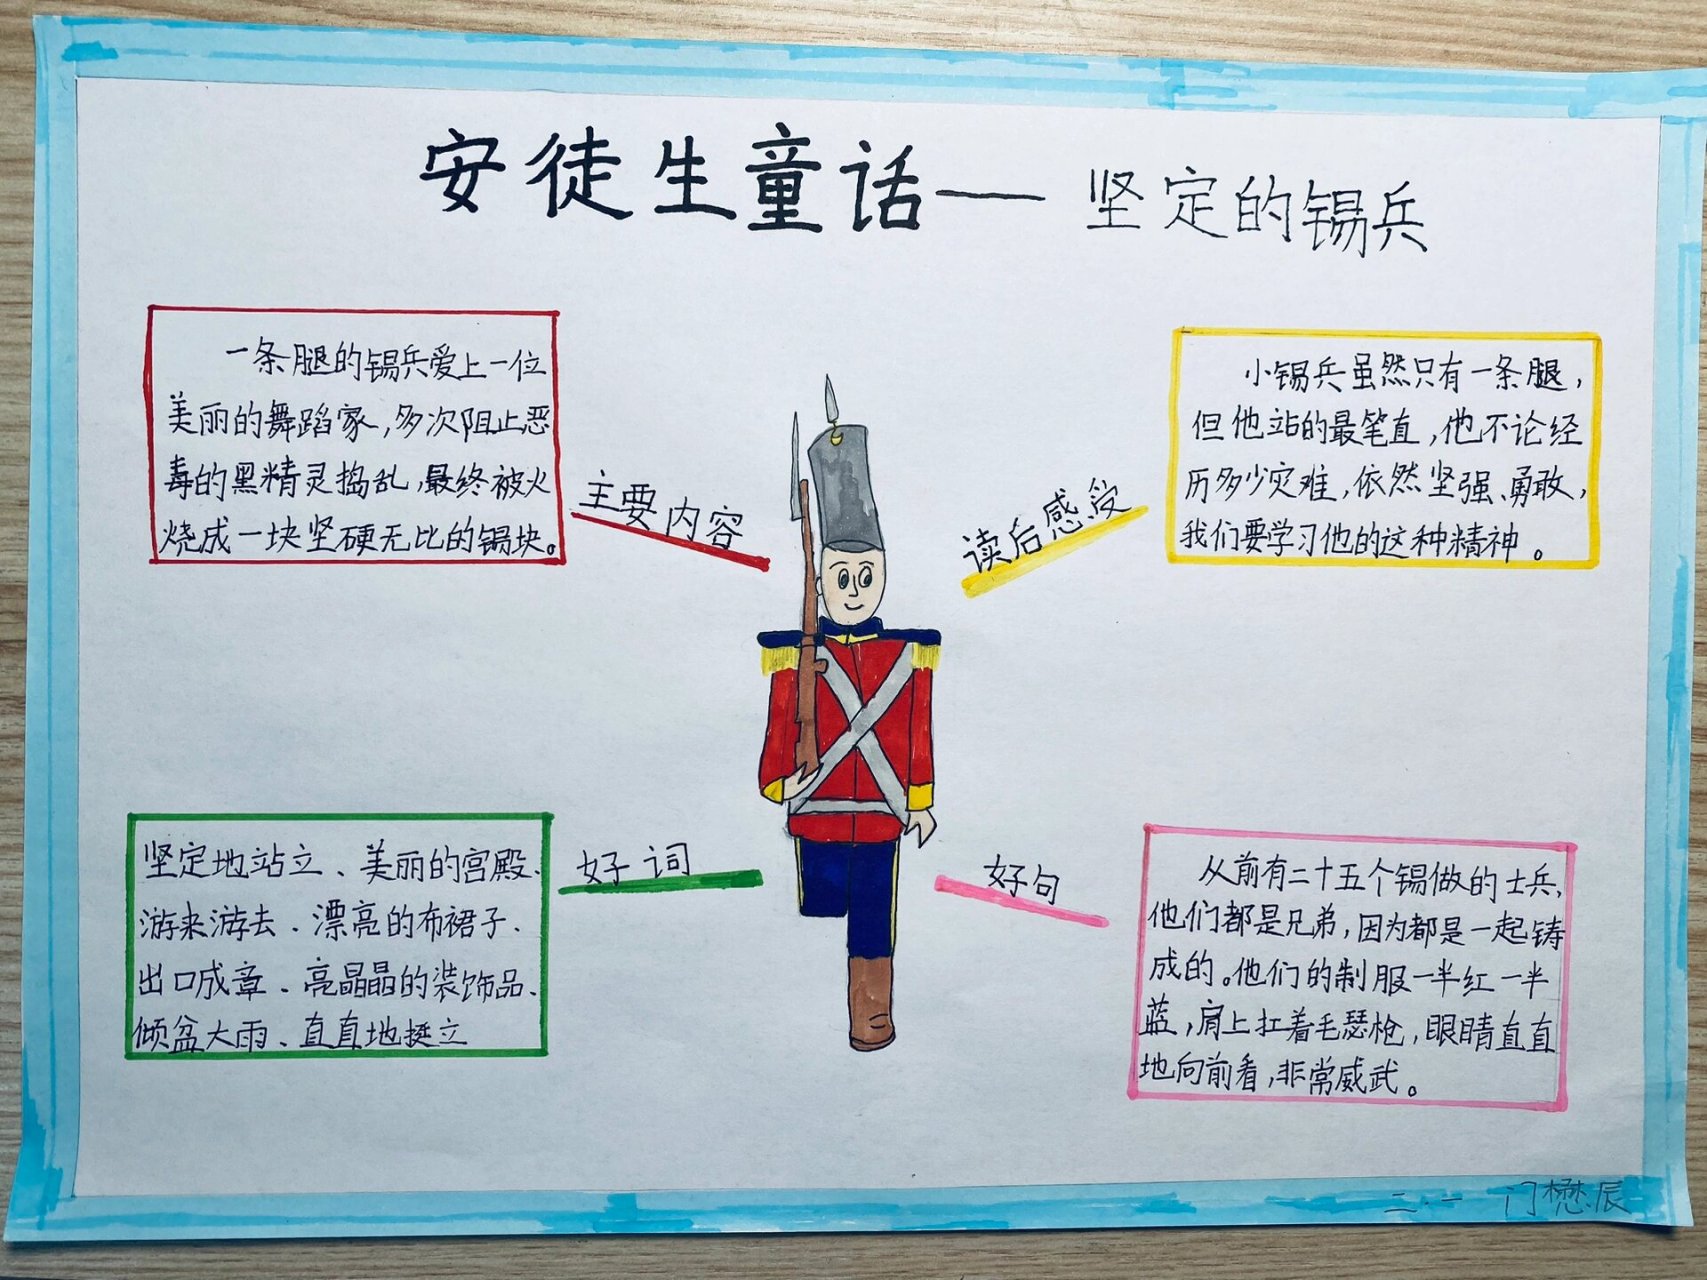 安徒生童话——坚定的锡兵
一条腿的锡兵爱上一位
美丽的舞蹈家,多次阻止恶
毒的黑精灵捣乱,最终被火
烧成一块坚硬无比的锡块。
主要内容
读后感受
小锡兵虽然只有一条腿,
但他站的最笔直,他不论经
历多少灾难,依然坚强、勇敢,
我们要学习他的这种精神。
坚定地站立、美丽的宫殿、
游来游去、漂亮的布裙子、
出口成章、亮晶晶的装饰品、
倾盆大雨、直直地挺立
好词
好句
从前有二十五个锡做的士兵,
他们都是兄弟,因为都是一起铸
成的。他们的制服一半红一半
蓝,肩上扛着毛瑟枪,眼睛直直
地向前看,非常威武。
二·一 门懋辰